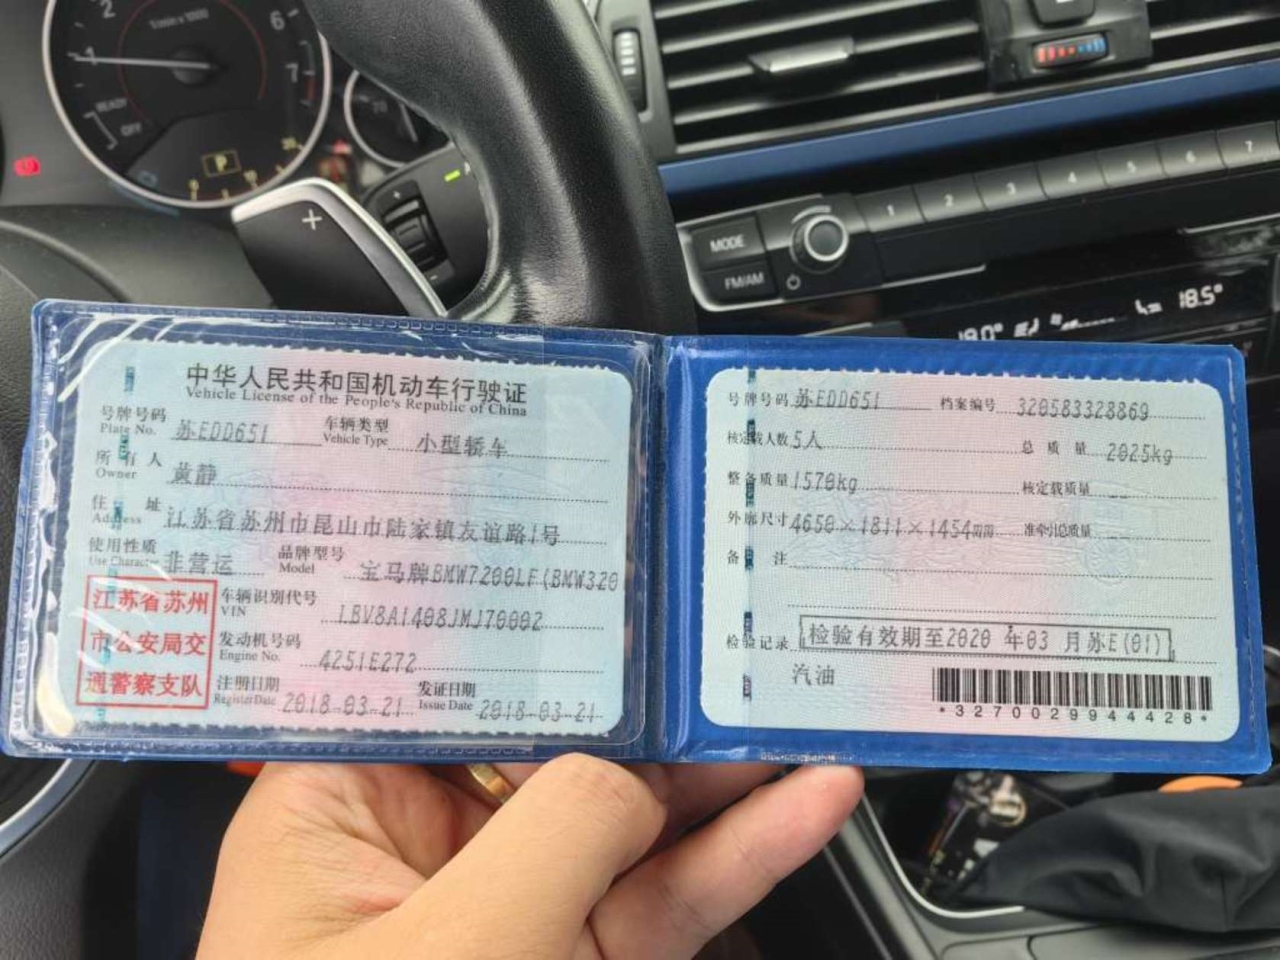 1/min x 1000
2
6
1
7
READY
OFF
P
20
+
MODE
FM/AM
1 2 3 4 5 6 7
18.0° 18.5°
中华人民共和国机动车行驶证
Vehicle License of the People's Republic of China
号牌号码 苏EDD651 车辆类型 小型轿车
Plate No. Vehicle Type
所有人 黄静
Owner
住址 江苏省苏州市昆山市陆家镇友谊路1号
Address
使用性质 非营运 品牌型号 宝马牌BMW7200LF(BMW320
Use Character Model
江苏省苏州
市公安局交
通警察支队
车辆识别代号 LBV8A1408JMJ70002
VIN
发动机号码 4251E272
Engine No.
注册日期 2018-03-21 发证日期 2018-03-21
Register Date Issue Date
号牌号码 苏EDD651 档案编号 320583328869
核定载人数 5人 总质量 2025kg
整备质量 1570kg 核定载质量 --
外廓尺寸 4650×1811×1454mm 准牵引总质量 --
备注
检验记录 检验有效期至2020年03月苏E(01)
汽油
*3270029944428*